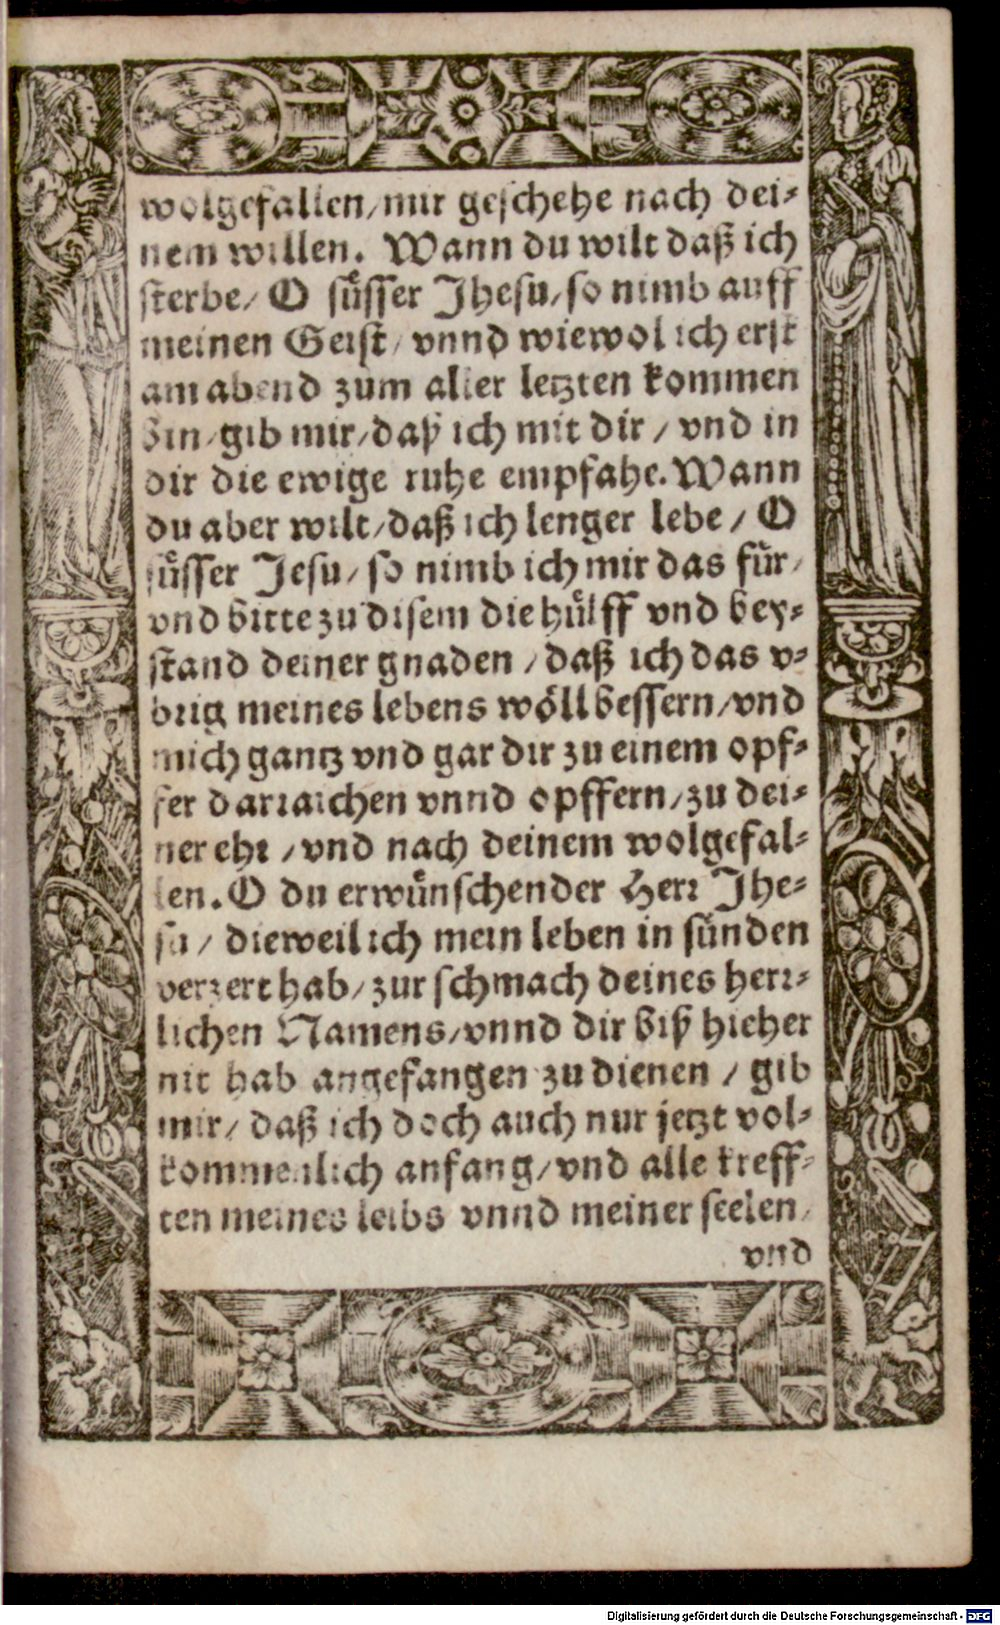 wolgefallen/mir geschehe nach dei⸗
nem willen. Wann du wilt daß ich
sterbe/ O süsser Jhesu/so nimb auff
meinen Geist/ vnnd wiewol ich erst
am abend zum aller letzten kommen
bin/gib mir/daß ich mit dir / vnd in
dir die ewige ruhe empfahe. Wann
du aber wilt/daß ich lenger lebe / O
süsser Jesu/ so nimb ich mir das für/
vnd bitte zu disem die hülff vnd bey⸗
stand deiner gnaden / daß ich das v⸗
brig meines lebens wöll bessern/vnd
mich gantz vnd gar dir zu einem opf⸗
fer darraichen vnnd opffern/zu dei⸗
ner ehr / vnd nach deinem wolgefal⸗
len. O du erwünschender Herr Jhe⸗
su / dieweil ich mein leben in sünden
verzert hab/ zur schmach deines herr⸗
lichen Namens/vnnd dir biß hieher
nit hab angefangen zu dienen / gib
mir/ daß ich doch auch nur jetzt vol⸗
kommenlich anfang/vnd alle kreff⸗
ten meines leibs vnnd meiner seelen/
vnd
Digitalisierung gefördert durch die Deutsche Forschungsgemeinschaft - DFG